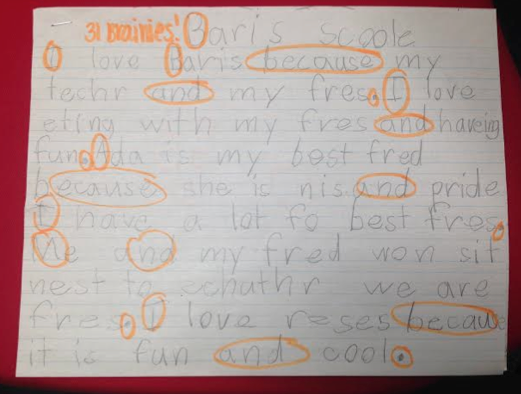 31 Brainies! Baris scoole
I love Baris because my
techr and my fres. I love
eting with my fres and haveing
fun. Ada is my best fred
because she is nis and pride
I have a lot fo best fres.
Me and my fred won sit
nest to echuthr we are
fres. I love reses because
it is fun and cool.